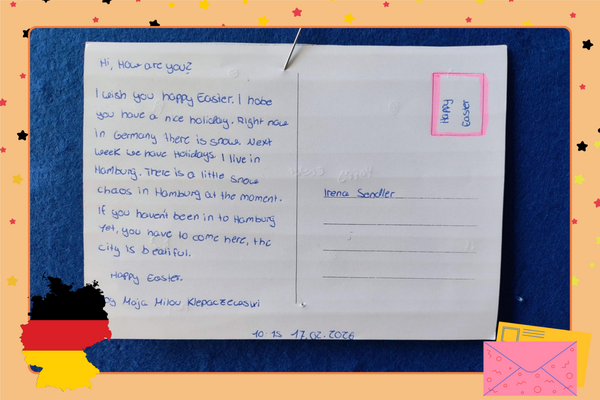 Hi, How are you?
I wish you happy Easter. I hope
you have a nice holiday. Right now
in Germany there is snow. Next
week we have Holidays. I live in
Hamburg. There is a little snow
chaos in Hamburg at the moment.
If you haven't been in to Hamburg
yet, you have to come here, the
city is beatiful.
Happy Easter.
Maja Milou
Happy
Easter
Irena Sendler
10:15 17.02.2026